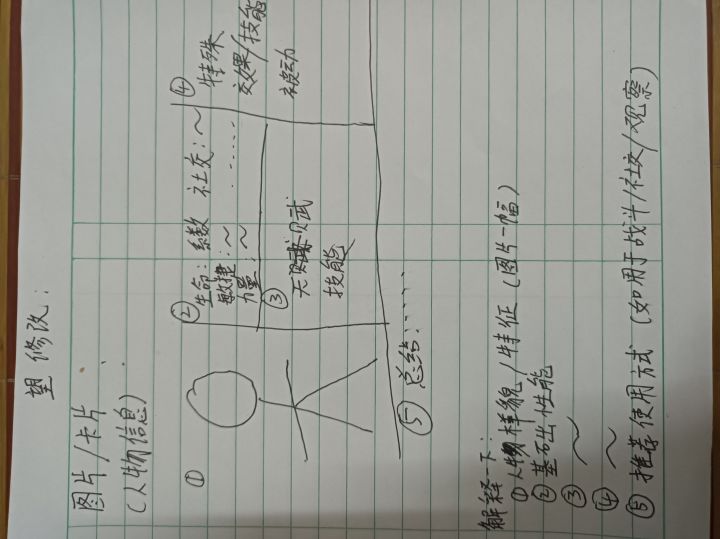 望修改：
图片/卡片
（人物信息）
①
② 生命：系数 社交：～
敏捷：～ ……
力量：～
③ 天赋
技能
④ 特殊
效果/技能
被动
⑤ 总结：……
解释一下：
① 人物样貌/特征（图片一幅）
② 基础性能
③ ～
④ ～
⑤ 推荐使用方式（如用于战斗/社交/观察）